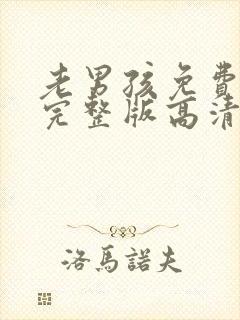 老男孩免費
完整版高清
洛馬諾夫